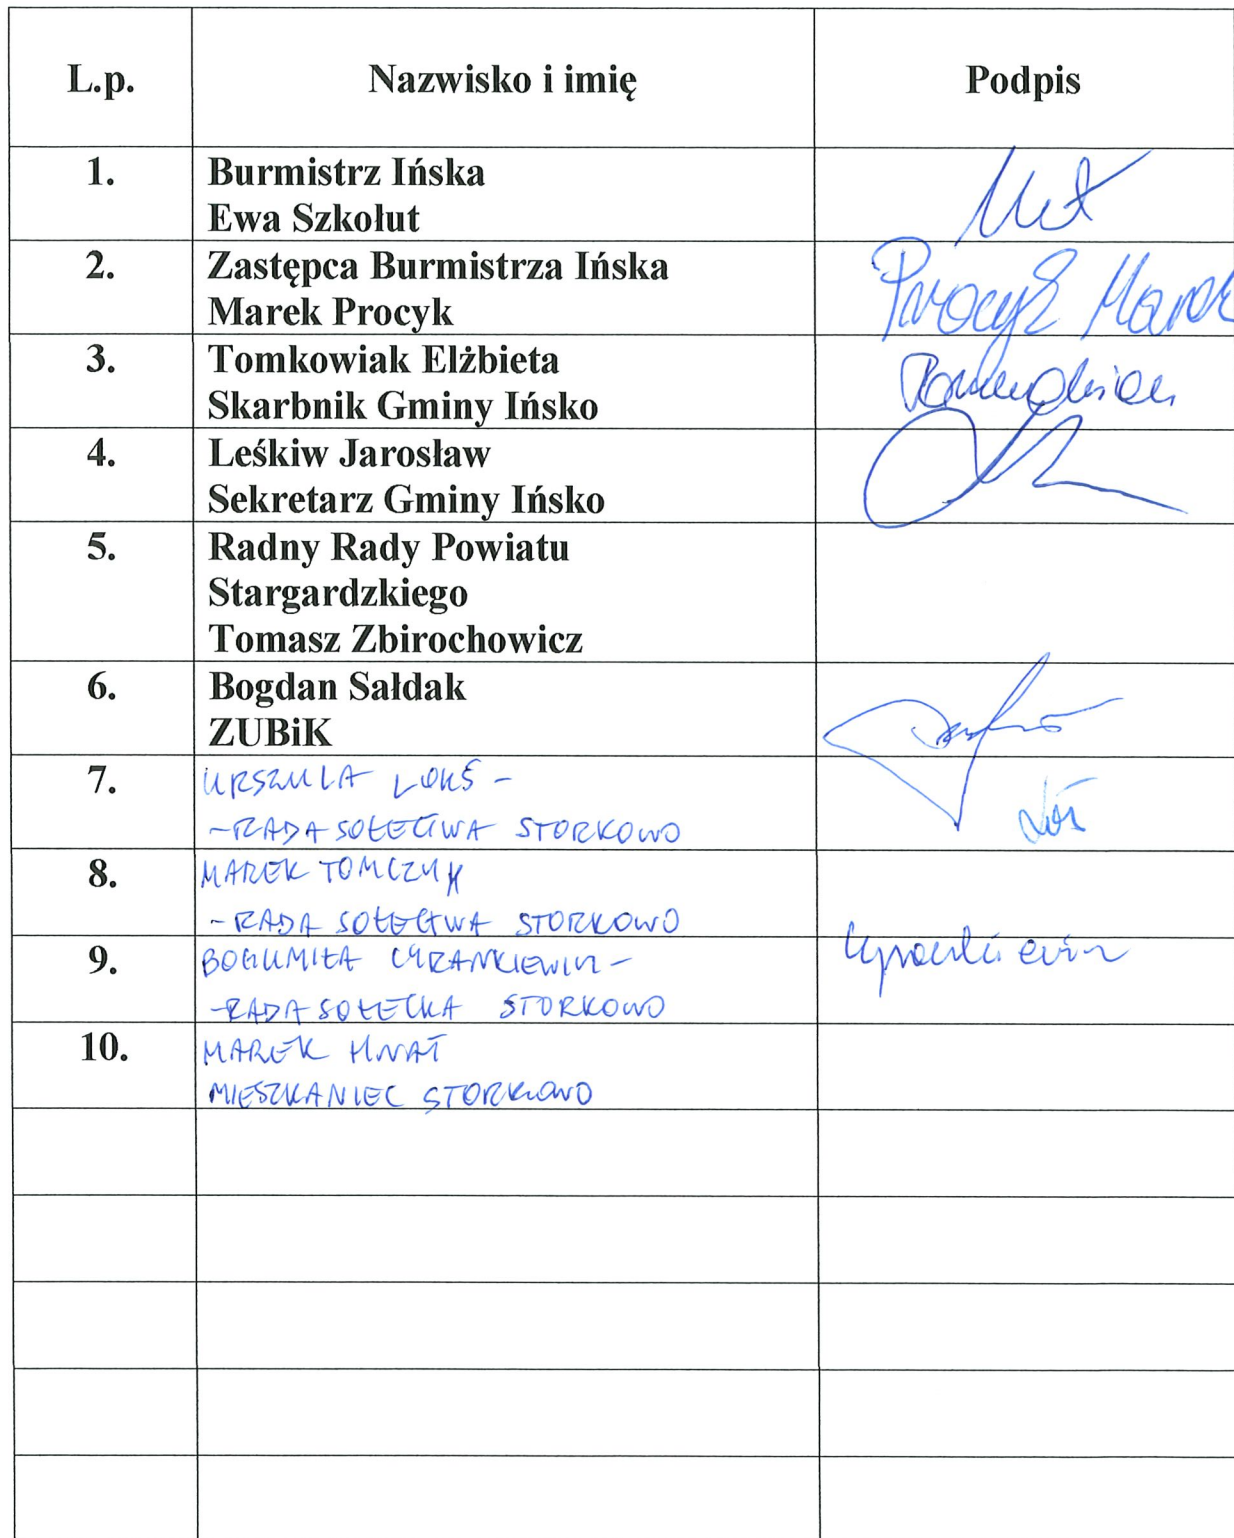 L.p. Nazwisko i imię Podpis
1. Burmistrz Ińska
Ewa Szkołut
2. Zastępca Burmistrza Ińska
Marek Procyk
Procyk Marek
3. Tomkowiak Elżbieta
Skarbnik Gminy Ińsko
4. Leśkiw Jarosław
Sekretarz Gminy Ińsko
5. Radny Rady Powiatu
Stargardzkiego
Tomasz Zbirochowicz
6. Bogdan Sałdak
ZUBiK
7. URSZULA -
- RADA SOŁECTWA STORKOWO
8. MAREK TOMCZYK
- RADA SOŁECTWA STORKOWO
9. BOGUMIŁA CYRANKIEWICZ -
- RADA SOŁECKA STORKOWO
10. MAREK HNAT
MIESZKANIEC STORKOWO